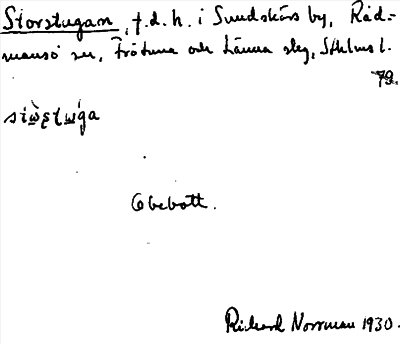 Storstugan, t.d.h. i Sundskärs by, Råd-
mansö sn, Frötuna och Länna slg, Sthlms l.
79.
Obebott.
Rickard Norrman 1930.